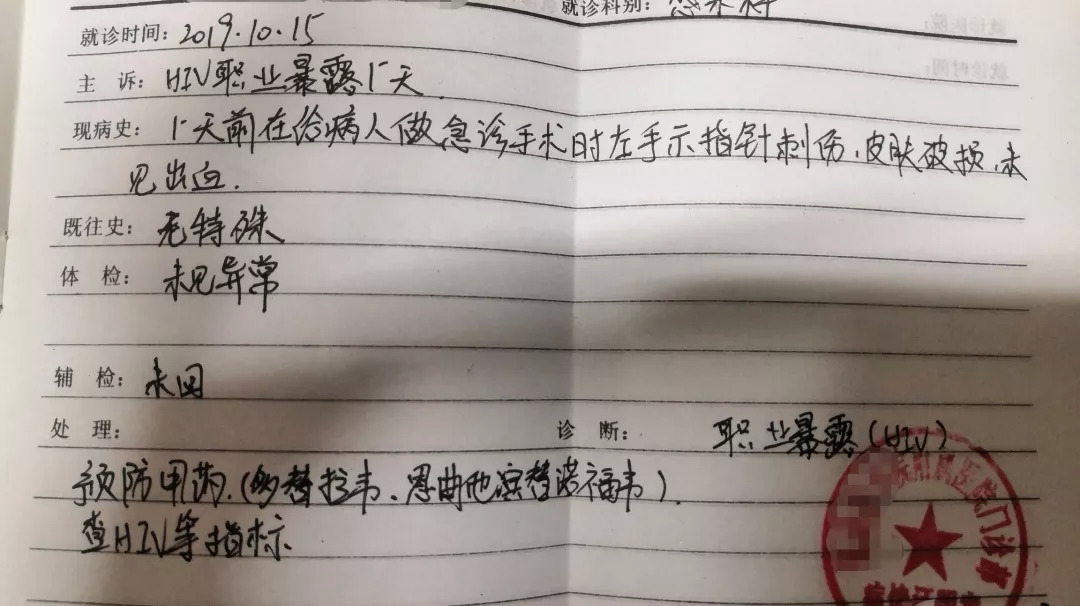 就诊科别: 感染科
就诊时间: 2019.10.15
主 诉: HIV职业暴露1天.
现病史: 1天前在给病人做急诊手术时左手示指针刺伤,皮肤破损,未
见出血.
既往史: 无特殊
体 检: 未见异常
辅 检: 未回
处 理: 诊 断: 职业暴露(HIV)
预防用药.(多替拉韦、恩曲他滨替诺福韦).
查HIV等指标
附属医院门诊部